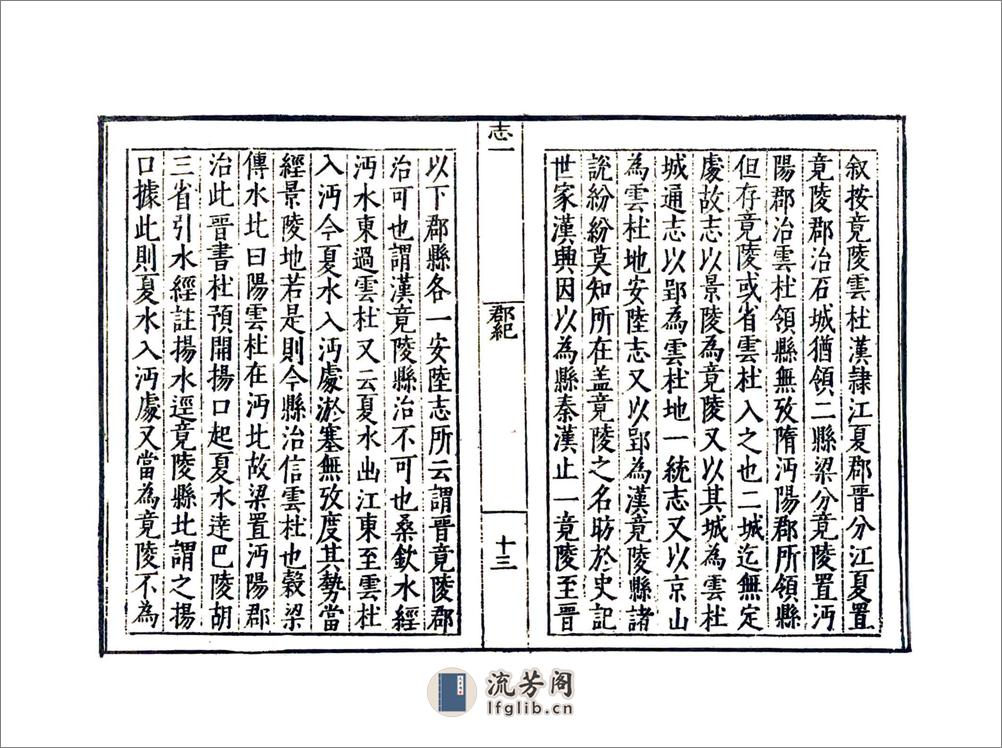 叙按竟陵雲杜漢隷江夏郡晉分江夏置
竟陵郡治石城猶領二縣梁分竟陵置沔
陽郡治雲杜領縣無攷隋沔陽郡所領縣
但存竟陵或省雲杜入之也二城迄無定
處故志以景陵為竟陵又以其城為雲杜
城通志以郢為雲杜地一統志又以京山
為雲杜地安陸志又以郢為漢竟陵縣諸
說紛紛莫知所在盖竟陵之名昉於史記
世家漢興因以為縣秦漢止一竟陵至晉
志一
郡紀
十三
以下郡縣各一安陸志所云謂晉竟陵郡
治可也謂漢竟陵縣治不可也桑欽水經
沔水東過雲杜又云夏水出江東至雲杜
入沔今夏水入沔處淤塞無攷度其勢當
經景陵地若是則今縣治信雲杜也穀梁
傳水北曰陽雲杜在沔北故梁置沔陽郡
治此晉書杜預開揚口起夏水達巴陵胡
三省引水經註揚水逕竟陵縣北謂之揚
口據此則夏水入沔處又當為竟陵不為
流芳阁
lfglib.cn